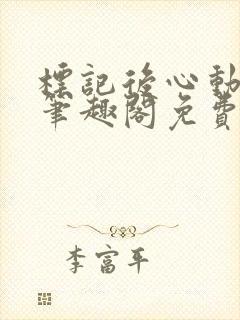 標記後心動
筆趣閣免費
李富平